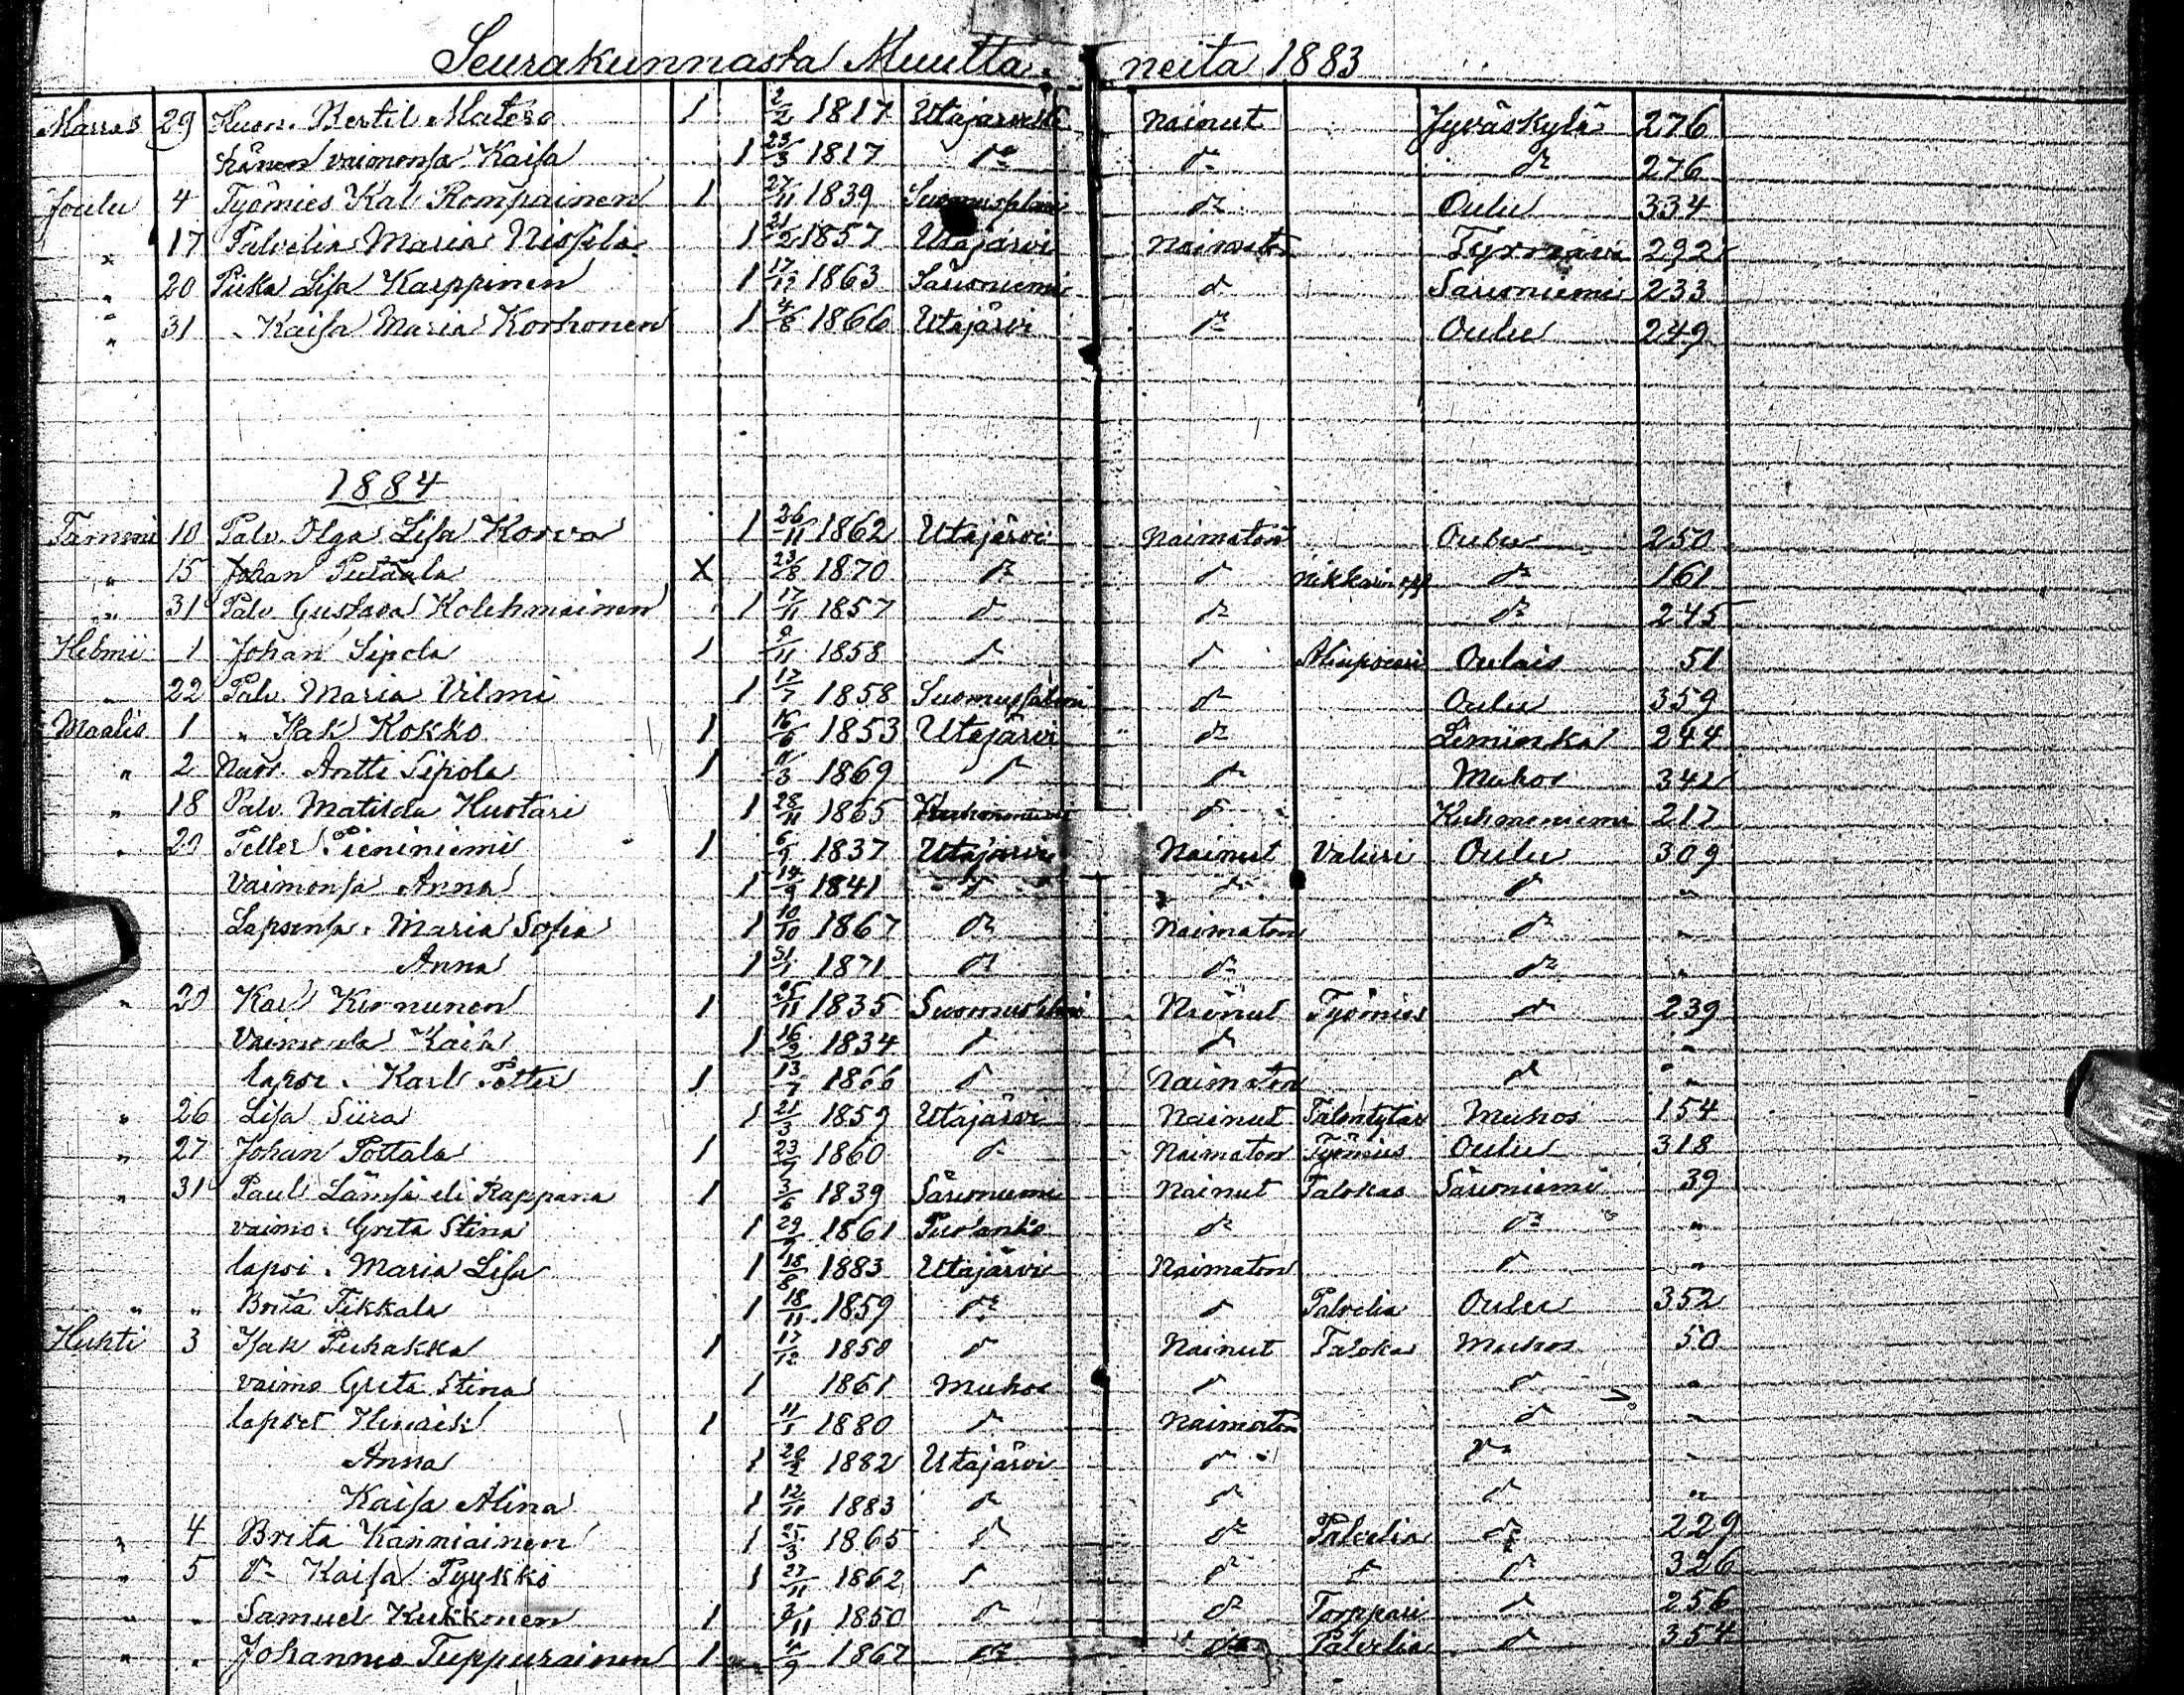 Seurakunnasta Muutta neita 1883
Marras 29 Huon. Bertil Matero 1 2/2 1817 Utajärvelä Nainut Jyväskylä 276
hänen vaimonsa Kaisa 1 23/3 1817 d:o d:o d:o 276
Joulu 4 Työmies Kal Romppainen 1 27/11 1839 d:o Oulu 334
" 17 Palvelia Maria Niskila 1 21/2 1857 Utajärvi Naimaton Tyrnävä 292
" 20 Piika Lisa Karppinen 1 17/12 1863 Säresniemi d:o Säresniemi 233
" 31 " Kaisa Maria Korhonen 1 4/8 1866 Utajärvi d:o Oulu 249
1884
Tammi 10 Palv. Olga Lisa Korva 1 26/11 1862 Utajärvi Naimaton Oulu 250
" 15 Johan Putaala X 23/8 1870 d:o d:o Nikkarin d:o 161
" 31 Palv Gustava Kolehmainen 1 17/11 1857 d:o d:o d:o 245
Helmi 1 Johan Sipola 1 9/11 1858 d:o d:o Oulais 51
" 22 Palv Maria Vilmi 1 17/7 1858 Suomussalmi d:o Oulu 359
Maalis 1 " Isak Kokko 1 16/6 1853 Utajärvi d:o Liminka 244
" 2 Nuor. Antti Sipola 1 1869 d:o d:o Muhos 342
" 18 Palv. Matilda Huotari 1 28/11 1865 Kuhmoniemi d:o Kuhmoniemi 217
" 20 Petter Pieniniemi 1 1837 Utajärvi Nainut Valuri Oulu 309
Vaimonsa Anna 1 14/9 1841 d:o d:o d:o "
Lapsensa. Maria Sofia 1 10/10 1867 d:o Naimaton d:o "
Anna 1 31/1 1871 d:o d:o d:o "
" 20 Kal Kinnunen 1 25/11 1835 Suomussalmi Nainut Työmies d:o 239
Vaimonsa Kaisa 1 16/9 1834 d:o d:o "
lapsi. Karl Petter 1 13/7 1866 d:o Naimaton d:o "
" 26 Lisa Siira 1 21/3 1859 Utajärvi Nainut Talontytär Muhos 154
" 27 Johan Pottala 1 23/7 1860 d:o Naimaton Työmies Oulu 318
" 31 Paul Lämsä eli Rappana 1 3/6 1839 Säresniemi Nainut Talokas Säresniemi 39
vaimo: Greta Stina 1 29/9 1861 Puolanko d:o d:o "
lapsi. Maria Lisa 1 18/8 1883 Utajärvi Naimaton d:o "
" " Brita Tikkala 1 18/11 1859 d:o d:o Palvelia Oulu 352
Huhti 3 Isak Puhakka 1 17/12 1850 d:o Nainut Talokas Muhos 50
vaimo Greta Stina 1 1861 Muhos d:o d:o "
lapset Henrik 1 11/1 1880 d:o Naimaton d:o "
Anna 1 28/2 1882 Utajärvi d:o d:o "
Kaisa Alina 1 12/11 1883 d:o d:o d:o "
" 4 Brita Kanniainen 1 25/3 1865 d:o d:o Palvelia d:o 229
" 5 d:o Kaisa Pyykkö 1 27/11 1862 d:o d:o d:o d:o 326
" " Samuel Kukkonen 1 3/11 1850 d:o d:o Torppari d:o 256
" " Johannes Tuppurainen 1 4/9 1867 d:o d:o Palvelia d:o 354